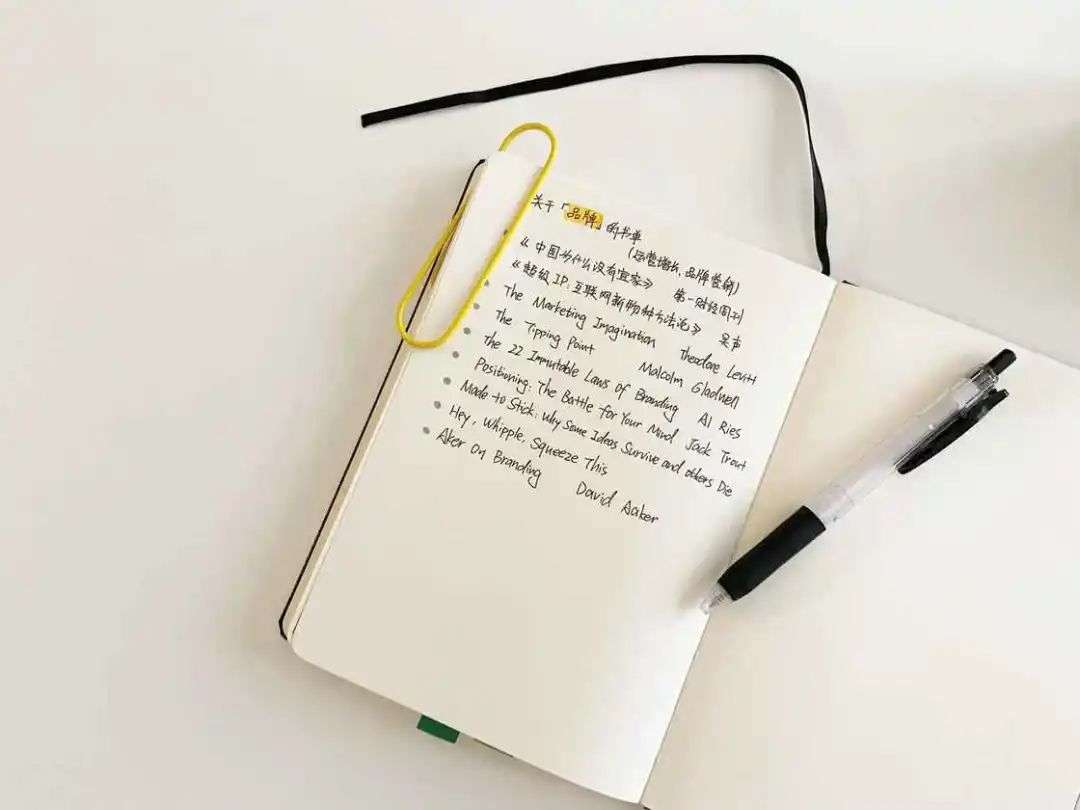 关于「品牌」的书单
(运营增长、品牌营销)
《中国为什么没有宜家》 第一财经周刊
《超级IP:互联网新物种方法论》 吴声
The Marketing Imagination Theodore Levitt
The Tipping Point Malcolm Gladwell
The 22 Immutable Laws of Branding Al Ries
Positioning: The Battle for Your Mind Jack Trout
Made to Stick: Why Some Ideas Survive and others Die
Hey, Whipple, Squeeze This
Aker On Branding David Aaker